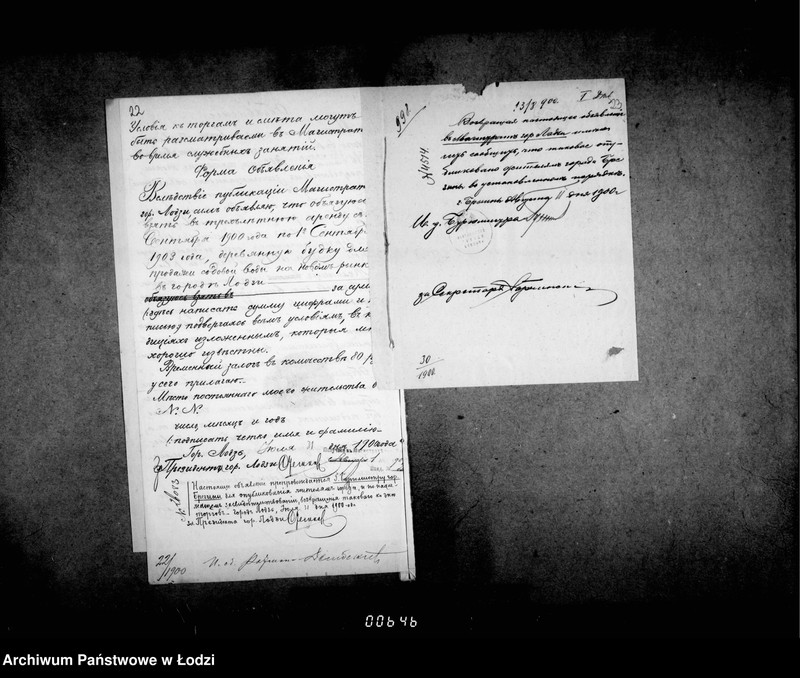 22
Условія къ торгамъ и смѣта могутъ
быть разсматриваемы въ Магистрат
во время служебныхъ занятій.
Форма объявленія
Вслѣдствіе публикаціи Магистрат
гор. Лодзи симъ объявляю, что обязуюс
взять въ трехлѣтнюю аренду съ
Сентября 1900 года по 1е Сентябр
1903 года, деревянную будку для
продажи содовой воды на Новомъ рынк
въ городѣ Лодзи за
обязуюсь взять въ
(здѣсь написать сумму цифрами и
подвергаясь всѣмъ условіямъ, въ
изложеннымъ, которыя мн
хорошо извѣстны.
Временный залогъ въ количествѣ 80 р
у сего прилагаю.
Мѣсто постояннаго моего жительства
N. N.
число, мѣсяцъ и годъ
(подписать четко имя и фамилію
Гор. Лодзь, Іюля 11 дня 1900 года
Президентъ гор. Лодзи
Настоящее объявленіе препровождается Г. Бургомистру гор.
Березины для опубликованія жителямъ
возвращенія таковаго къ дню
торговъ. городъ Лодзь, Іюля 11 дня 1900 года
За Президента гор. Лодзи
22/1900
13/8 900
I
392
N 4574
Возвращая настоящее объявлен
въ Магистратъ гор. Лодзи
сообщить, что таковое опу
бликовано жителямъ города Бре
зинъ, въ установленномъ порядкѣ.
г. Брезины Августа 11 дня 1900 г
И. д. Бургомистра
за Секретаря
30/1900
00646
Archiwum Państwowe w Łodzi